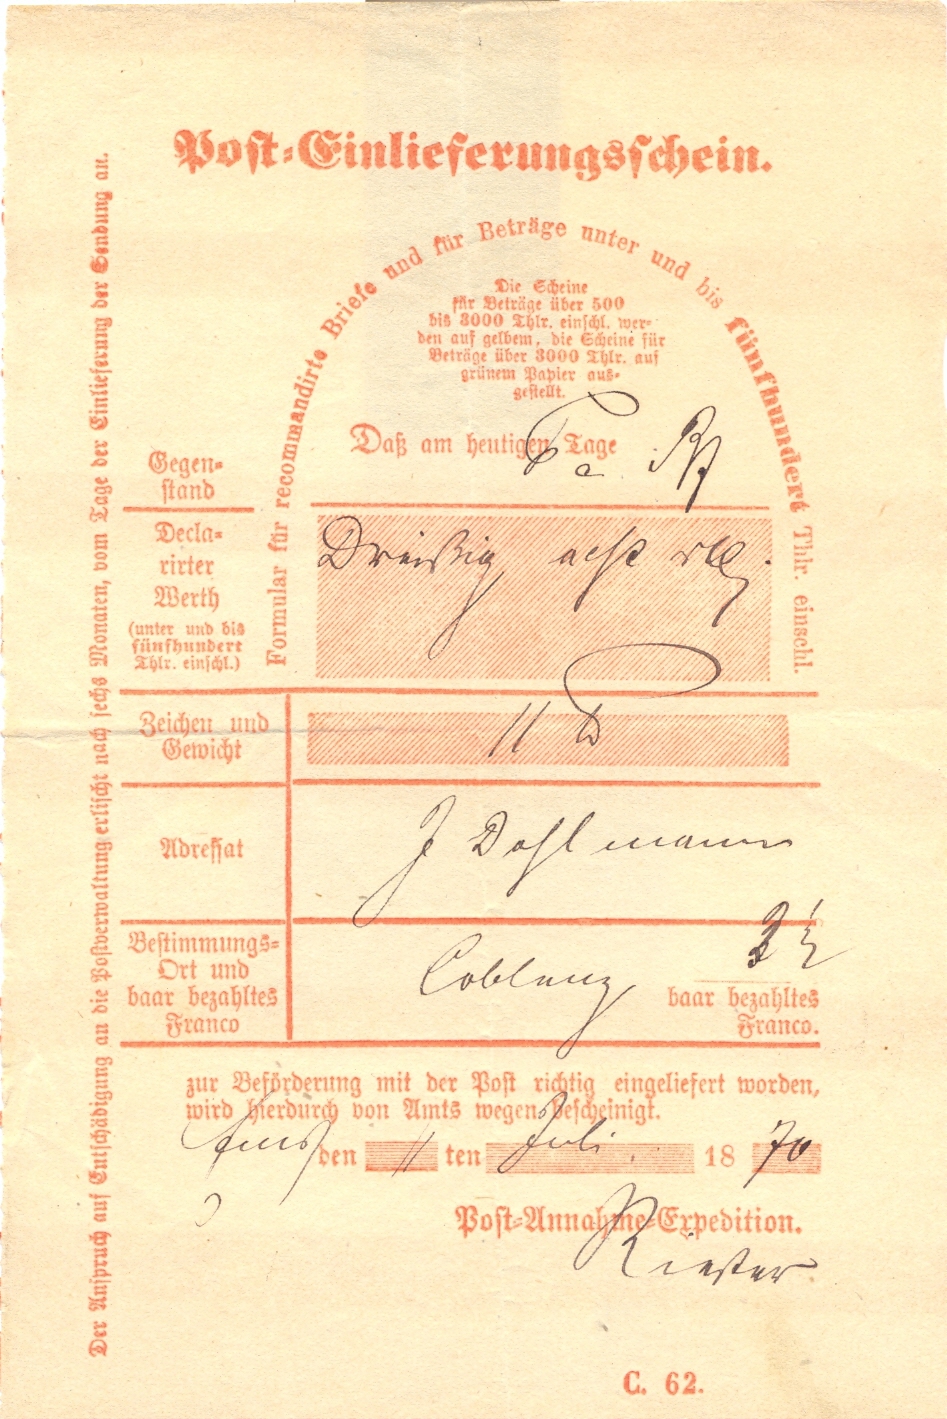 Post-Einlieferungsschein.
Formular für recommandirte Briefe und für Beträge unter und bis fünfhundert Thlr. einschl.
Die Scheine
für Beträge über 500
bis 3000 Thlr. einschl. wer-
den auf gelbem, die Scheine für
Beträge über 3000 Thlr. auf
grünem Papier aus-
gestellt.
Daß am heutigen Tage
Gegen-
stand
Decla-
rirter
Werth
(unter und bis
fünfhundert
Thlr. einschl.)
Dreißig acht
Zeichen und
Gewicht
11
Adressat
J Dahlmann
Bestimmungs-
Ort und
baar bezahltes
Franco
Coblenz
3½
baar bezahltes
Franco.
zur Beförderung mit der Post richtig eingeliefert worden,
wird hierdurch von Amts wegen bescheinigt.
Ems den 11 ten Juli 1870
Post-Annahme-Expedition.
C. 62.
Der Anspruch auf Entschädigung an die Postverwaltung erlischt nach sechs Monaten, vom Tage der Einlieferung der Sendung an.